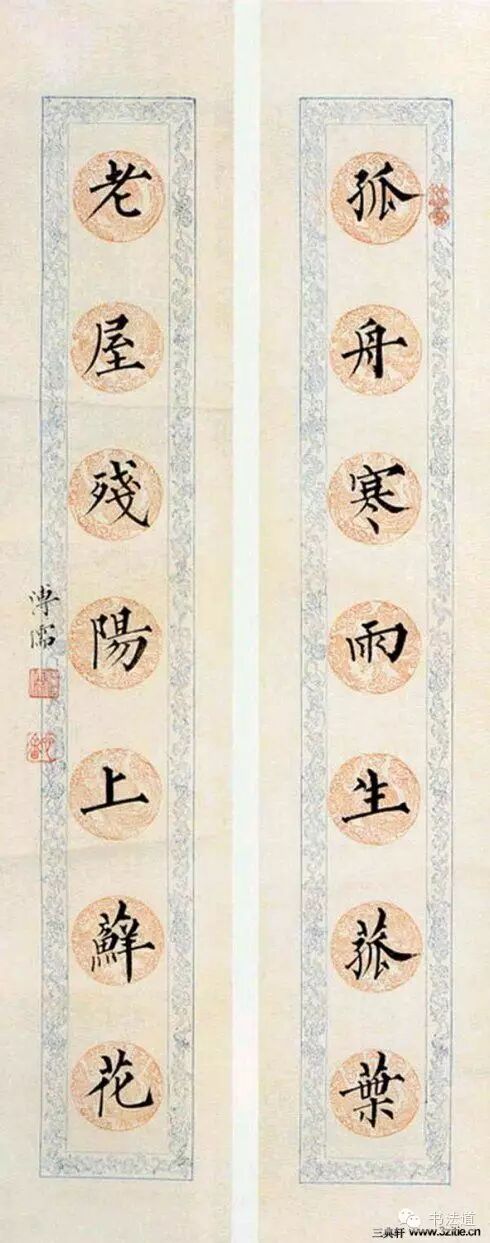 孤舟寒雨生菰葉
老屋残陽上蘚花
溥儒
书法道
三典轩 www.3zitie.cn